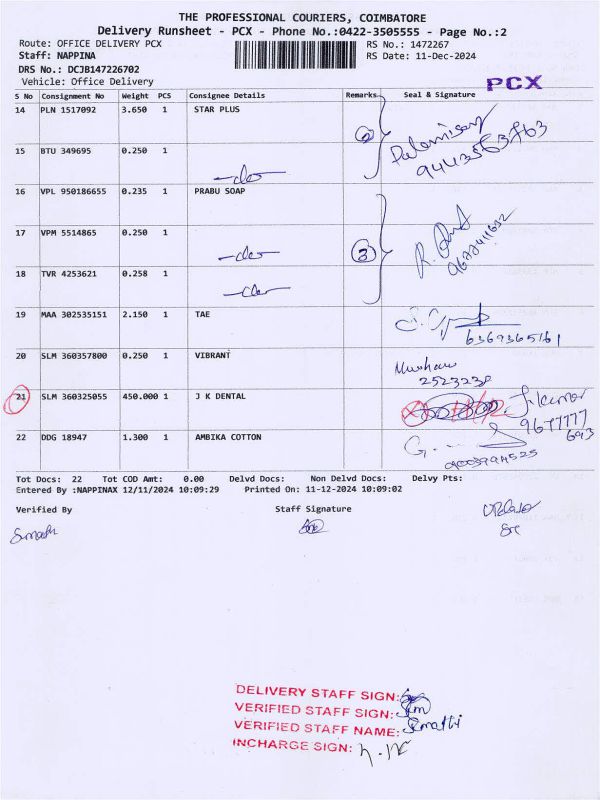 THE PROFESSIONAL COURIERS, COIMBATORE
Delivery Runsheet - PCX - Phone No.:0422-3505555 - Page No.:2
Route: OFFICE DELIVERY PCX RS No.: 1472267
Staff: NAPPINA RS Date: 11-Dec-2024
DRS No.: DCJB147226702
Vehicle: Office Delivery
PCX
S No Consignment No Weight PCS Consignee Details Remarks Seal & Signature
14 PLN 1517092 3.650 1 STAR PLUS
2 Palanisamy
9443563763
15 BTU 349695 0.250 1 -do-
16 VPL 950186655 0.235 1 PRABU SOAP
17 VPM 5514865 0.250 1 -do- 3
18 TVR 4253621 0.258 1 -do-
19 MAA 302535151 2.150 1 TAE
6369365161
20 SLM 360357800 0.250 1 VIBRANT
2523230
21 SLM 360325055 450.000 1 J K DENTAL
9677777
693
22 DDG 18947 1.300 1 AMBIKA COTTON
9003994525
Tot Docs: 22 Tot COD Amt: 0.00 Delvd Docs: Non Delvd Docs: Delvy Pts:
Entered By :NAPPINAX 12/11/2024 10:09:29 Printed On: 11-12-2024 10:09:02
Verified By Staff Signature
Sumathi
DELIVERY STAFF SIGN:
VERIFIED STAFF SIGN:
VERIFIED STAFF NAME: Sumathi
INCHARGE SIGN: